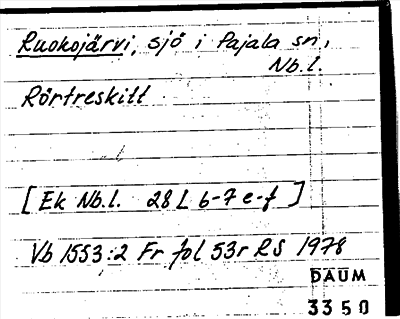 Ruokojärvi, sjö i Pajala sn,
Nb.l.
Rörtreskitt
[Ek Nb.l. 28 L 6-7 e-f ]
Vb 1553:2 Fr fol 53r RS 1978
DAUM
3350